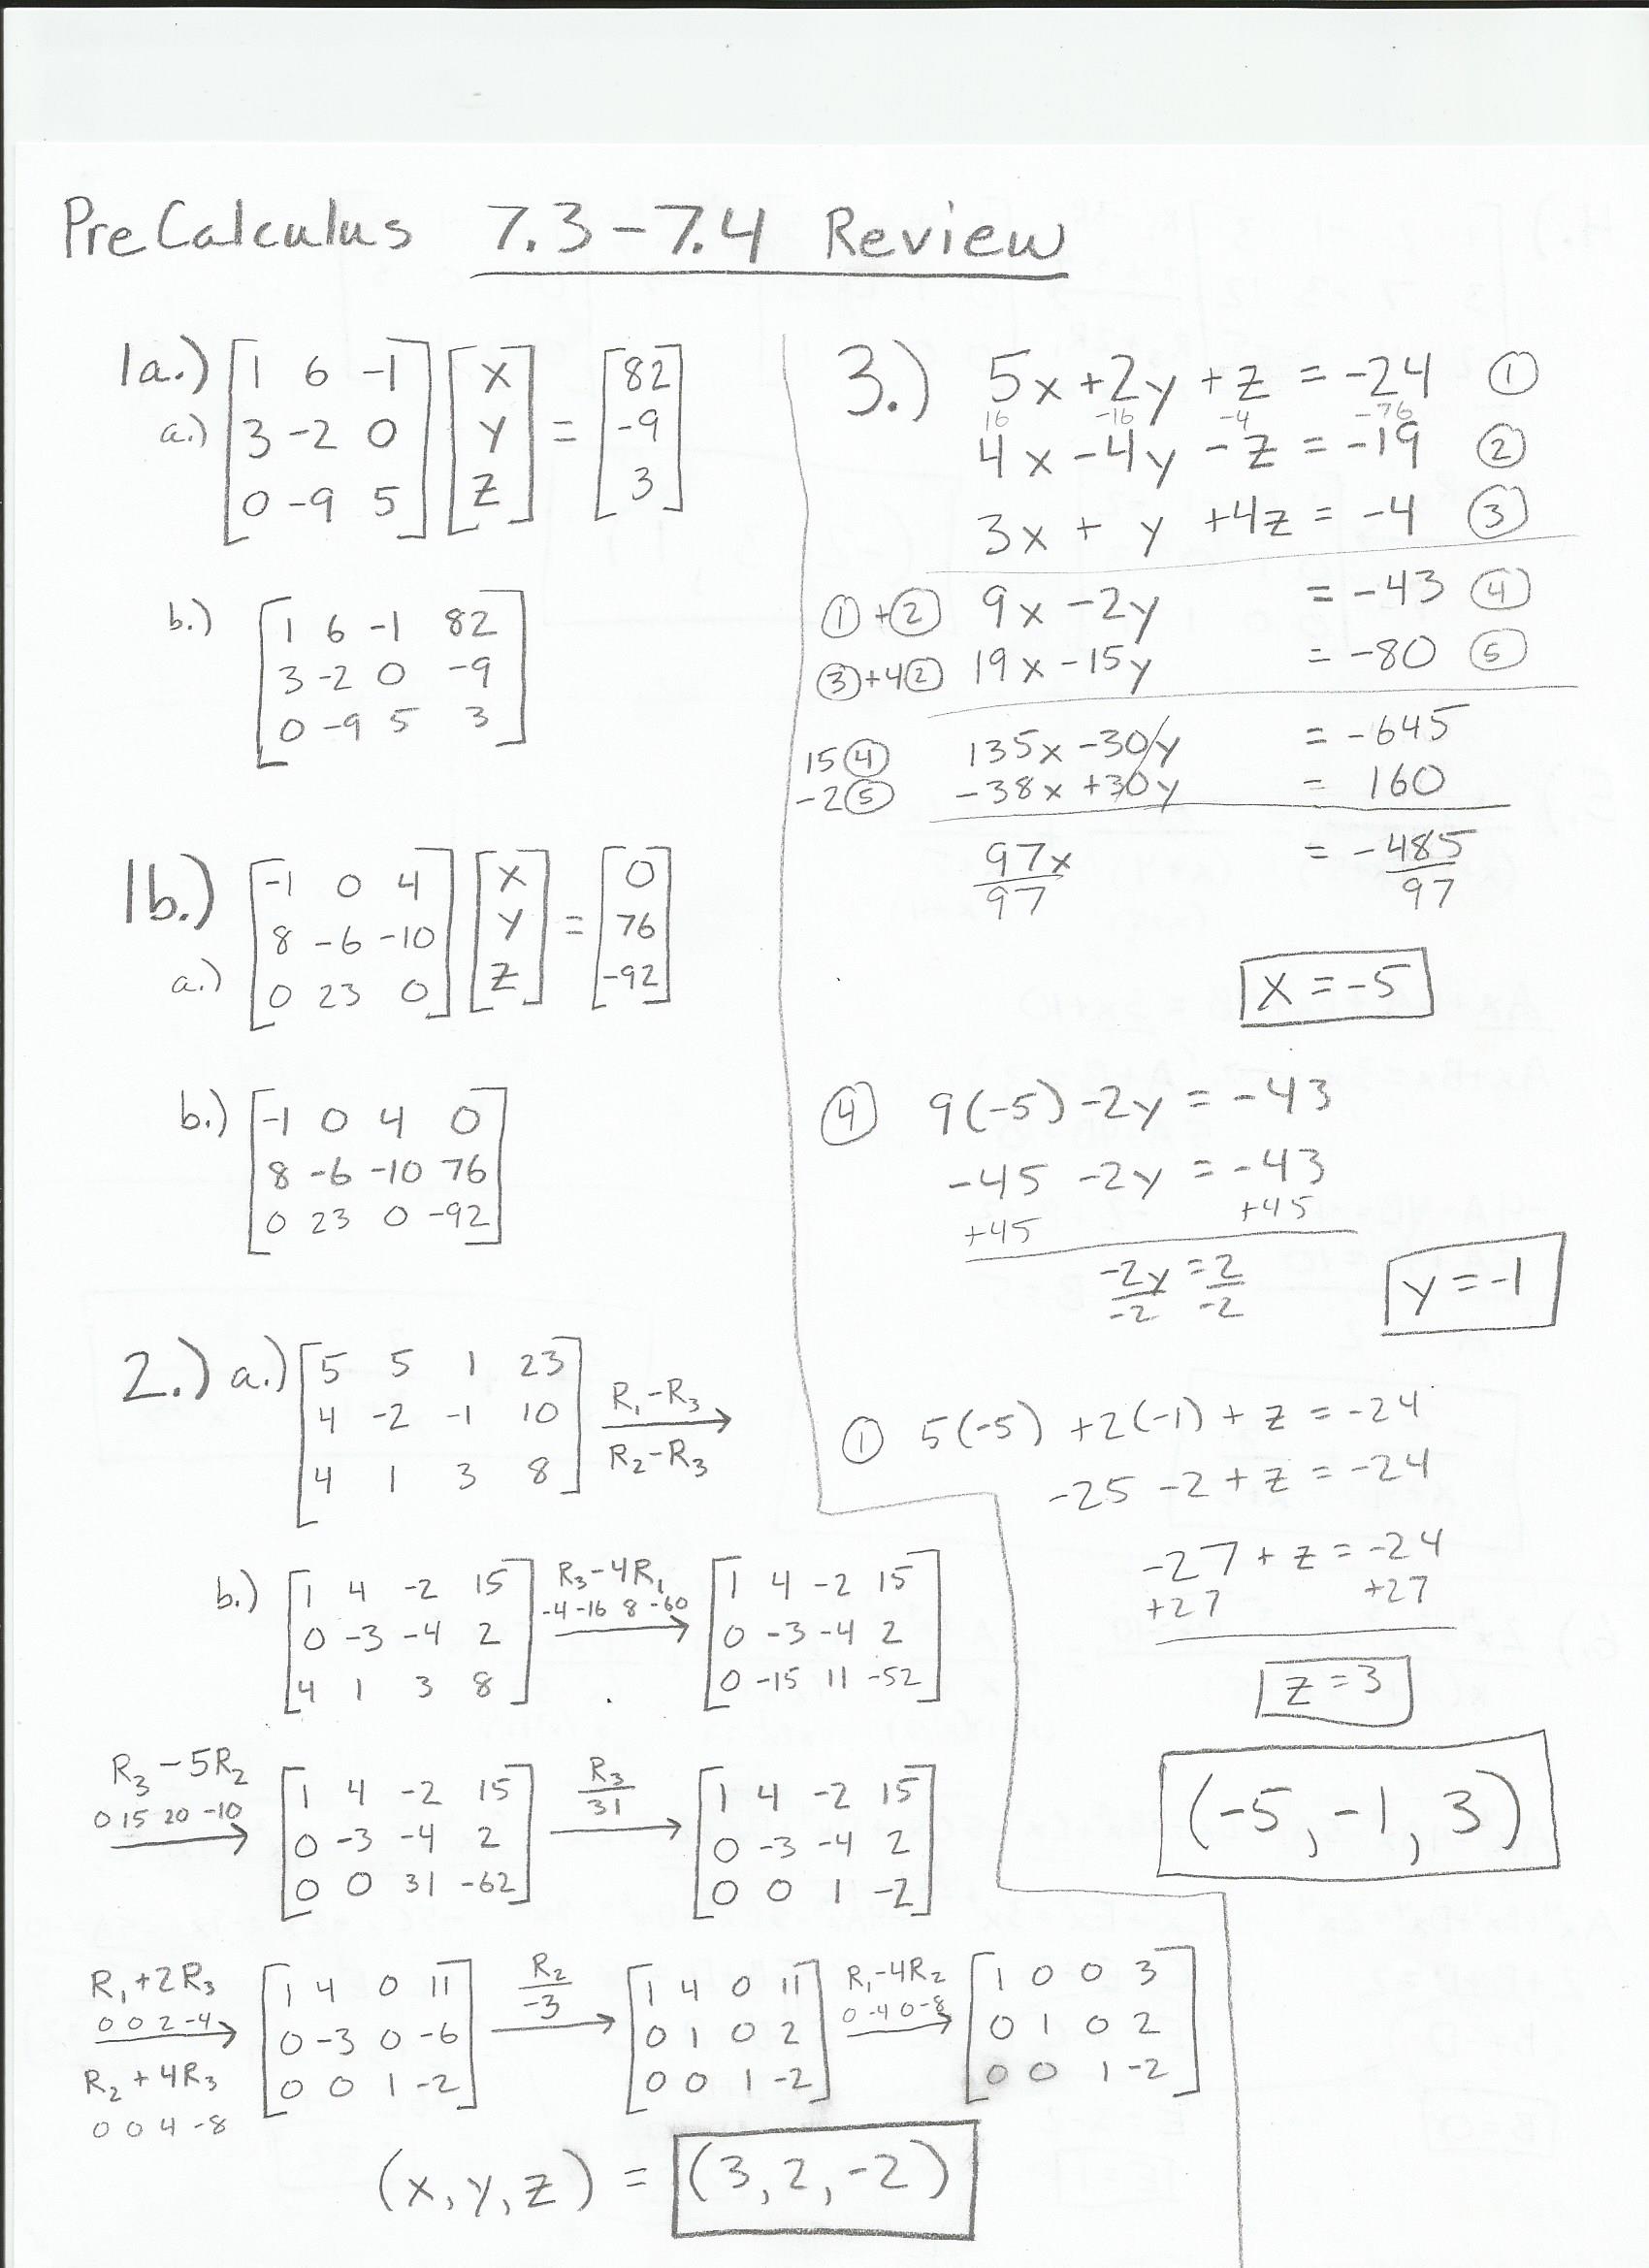 PreCalculus 7.3-7.4 Review
1a.)
a.)
[1 6 -1] [x] [82]
[3 -2 0] [y] = [-9]
[0 -9 5] [z] [3]
b.)
[1 6 -1 82]
[3 -2 0 -9]
[0 -9 5 3]
1b.)
a.)
[-1 0 4] [x] [0]
[8 -6 -10] [y] = [76]
[0 23 0] [z] [-92]
b.)
[-1 0 4 0]
[8 -6 -10 76]
[0 23 0 -92]
2.) a.)
[5 5 1 23]
[4 -2 -1 10]
[4 1 3 8]
R₁-R₃
R₂-R₃
b.)
[1 4 -2 15]
[0 -3 -4 2]
[4 1 3 8]
R₃-4R₁
-4 -16 8 -60
[1 4 -2 15]
[0 -3 -4 2]
[0 -15 11 -52]
R₃-5R₂
0 15 20 -10
[1 4 -2 15]
[0 -3 -4 2]
[0 0 31 -62]
R₃
31
[1 4 -2 15]
[0 -3 -4 2]
[0 0 1 -2]
R₁+2R₃
0 0 2 -4
R₂+4R₃
0 0 4 -8
[1 4 0 11]
[0 -3 0 -6]
[0 0 1 -2]
R₂
-3
[1 4 0 11]
[0 1 0 2]
[0 0 1 -2]
R₁-4R₂
0 -4 0 -8
[1 0 0 3]
[0 1 0 2]
[0 0 1 -2]
(x,y,z) = (3,2,-2)
3.) 5x+2y+z = -24 ①
16 -16 -4 -76
4x-4y-z = -19 ②
3x + y +4z = -4 ③
①+② 9x-2y = -43 ④
③+4② 19x-15y = -80 ⑤
15④ 135x-30y = -645
-2⑤ -38x+30y = 160
97x = -485
97 97
x=-5
④ 9(-5)-2y = -43
-45 -2y = -43
+45 +45
-2y = 2
-2 -2
y=-1
① 5(-5) +2(-1) + z = -24
-25 -2 + z = -24
-27 + z = -24
+27 +27
z=3
(-5,-1,3)